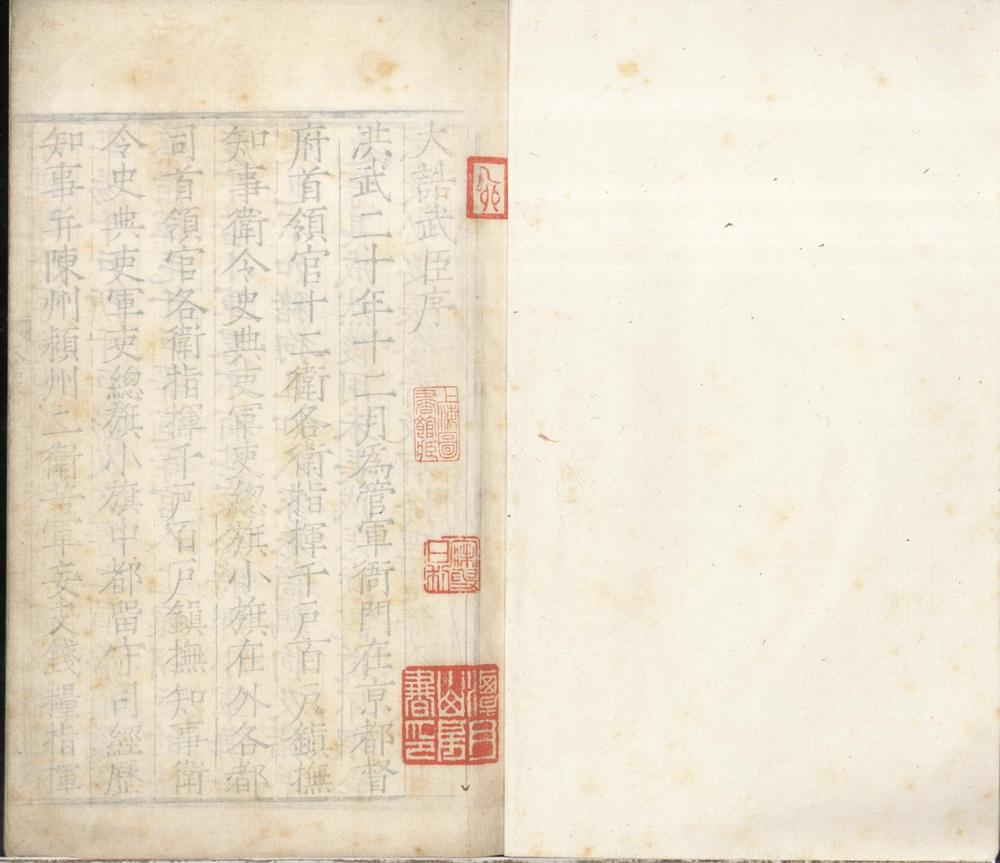 大誥武臣序
洪武二十年十二月為管軍衙門在京都督
府首領官十二衛各衛指揮千戶百戶鎮撫
知事衛令史典吏軍吏總旗小旗在外各都
司首領官各衛指揮千戶百戶鎮撫知事衛
令史典吏軍吏總旗小旗中都留守司經歷
知事并陳州潁州二衛為軍妄支錢糧指揮
上海圖書館藏